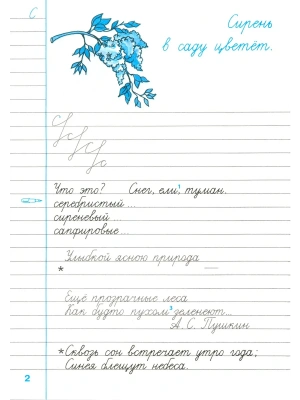 С
Сирень
в саду цветёт.
Что это? Снег, ели¹, туман.
серебристый...
сиреневый...
сапфировые...
Улыбкой ясною природа
*
Ещё прозрачные леса
Как будто пухом³ зеленеют...
А. С. Пушкин
*Сквозь сон встречает утро года;
Синея блещут небеса.
2